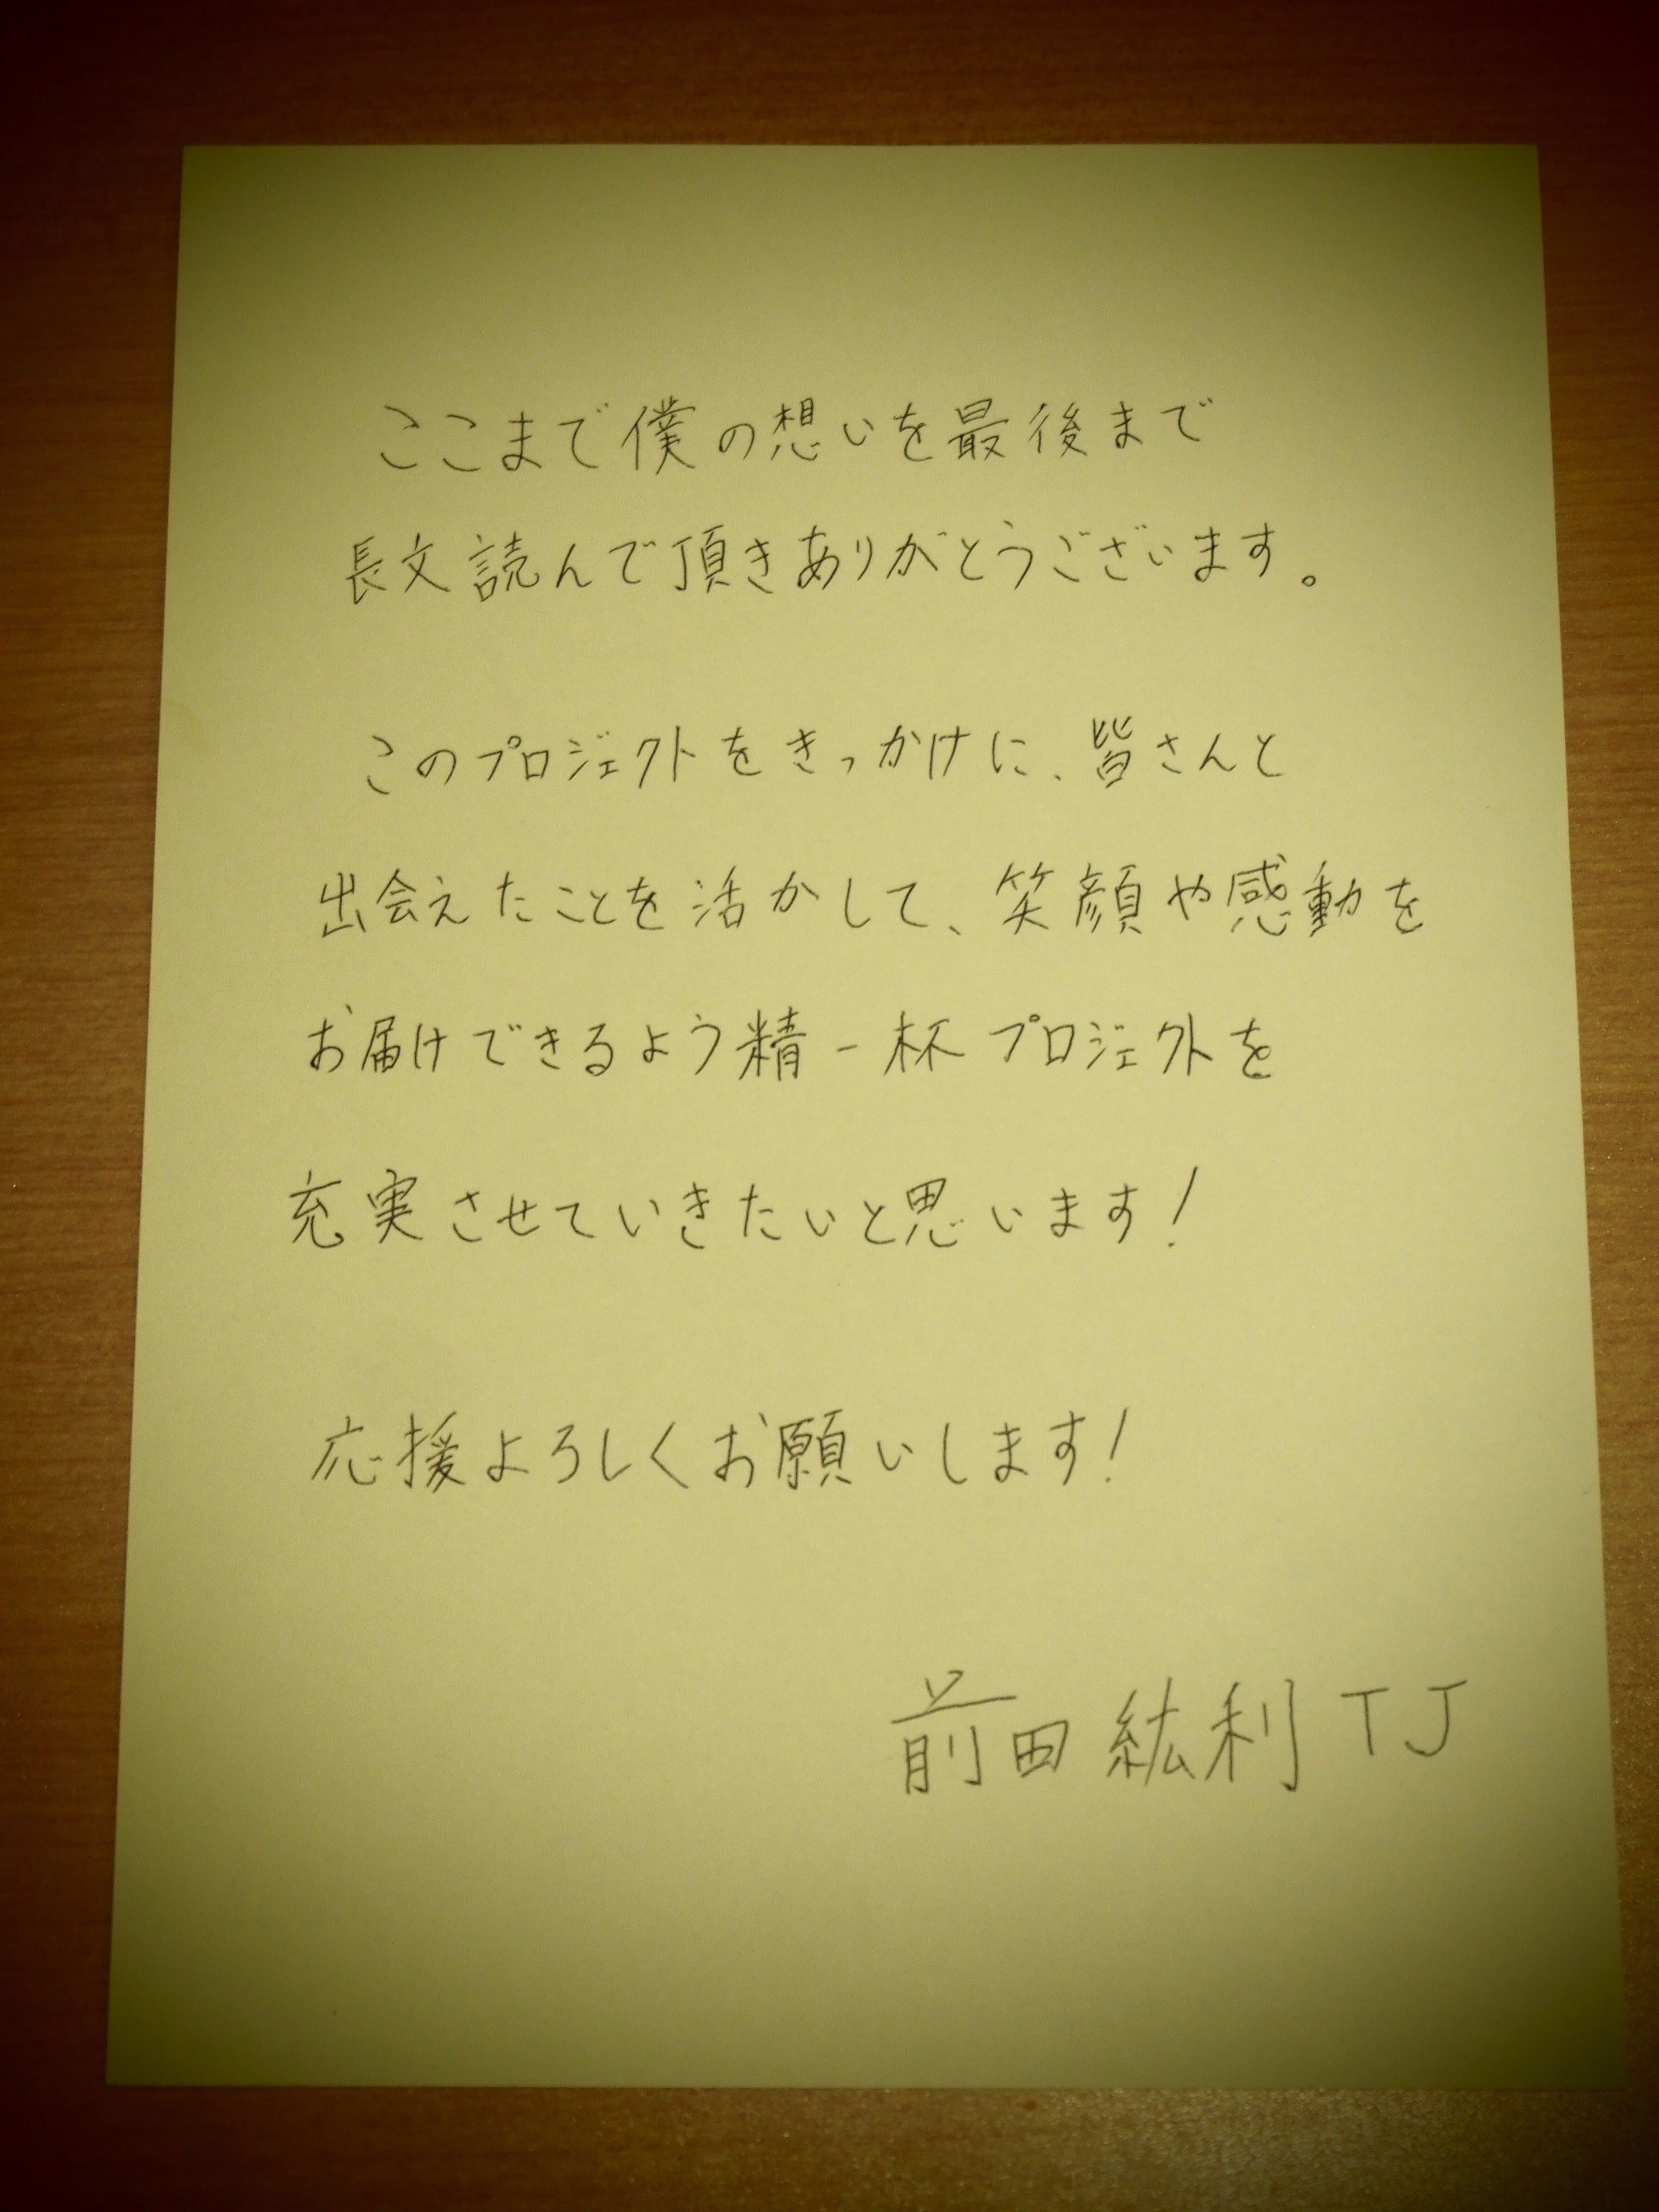 ここまで僕の想いを最後まで
長文読んで頂きありがとうございます。
このプロジェクトをきっかけに、皆さんと
出会えたことを活かして、笑顔や感動を
お届けできるよう精一杯プロジェクトを
充実させていきたいと思います!
応援よろしくお願いします!
前田紘利TJ